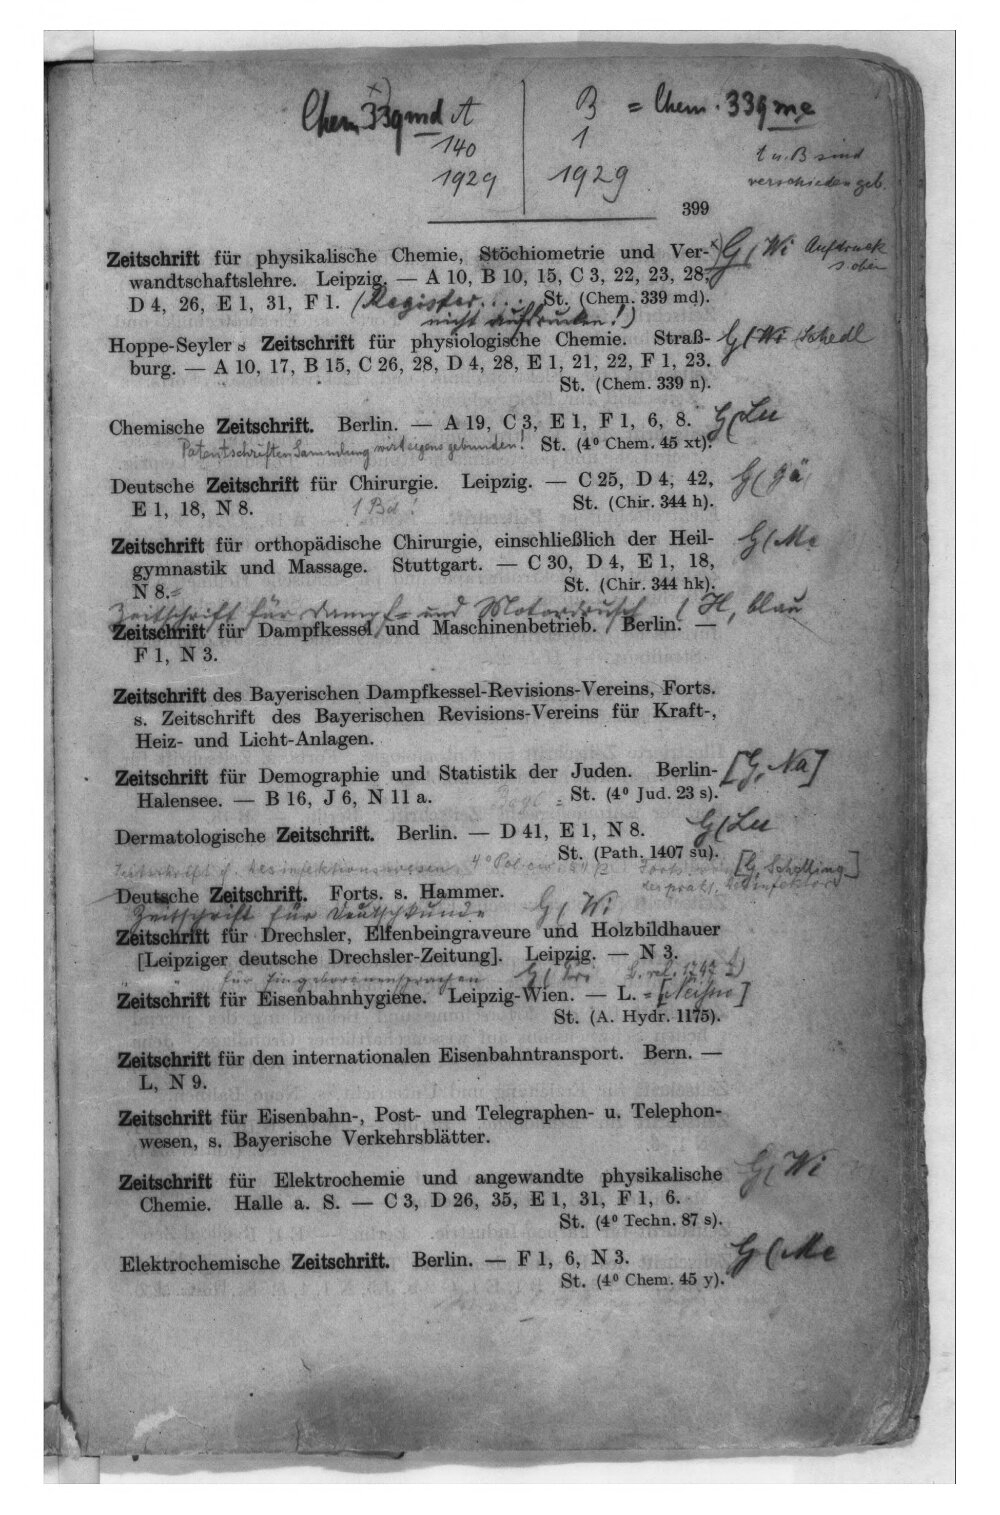 Chem. 339 md A
140
1929
B = Chem. 339 me
1
1929
A u. B sind
verschieden geb.
399
Zeitschrift für physikalische Chemie, Stöchiometrie und Ver- G/Wi Aufdruck
wandtschaftslehre. Leipzig. — A 10, B 10, 15, C 3, 22, 23, 28, s. oben
D 4, 26, E 1, 31, F 1. (Register... St. (Chem. 339 md).
nicht aufdrucken!)
Hoppe-Seylers Zeitschrift für physiologische Chemie. Straß- G/Wi Schedl
burg. — A 10, 17, B 15, C 26, 28, D 4, 28, E 1, 21, 22, F 1, 23.
St. (Chem. 339 n).
Chemische Zeitschrift. Berlin. — A 19, C 3, E 1, F 1, 6, 8. G/Lu
Patentschriften Sammlung wird eigens gebunden! St. (4⁰ Chem. 45 xt).
Deutsche Zeitschrift für Chirurgie. Leipzig. — C 25, D 4, 42, G/Gä
E 1, 18, N 8. 1 Bd! St. (Chir. 344 h).
Zeitschrift für orthopädische Chirurgie, einschließlich der Heil- G/Me
gymnastik und Massage. Stuttgart. — C 30, D 4, E 1, 18,
N 8. St. (Chir. 344 hk).
Zeitschrift für Dampf- und / H, blau
Zeitschrift für Dampfkessel und Maschinenbetrieb. Berlin. —
F 1, N 3.
Zeitschrift des Bayerischen Dampfkessel-Revisions-Vereins, Forts.
s. Zeitschrift des Bayerischen Revisions-Vereins für Kraft-,
Heiz- und Licht-Anlagen.
Zeitschrift für Demographie und Statistik der Juden. Berlin- [G, Na]
Halensee. — B 16, J 6, N 11 a. St. (4⁰ Jud. 23 s).
Dermatologische Zeitschrift. Berlin. — D 41, E 1, N 8. G/Lu
St. (Path. 1407 su).
Zeitschrift f. Desinfektionswesen [G, Schilling]
Deutsche Zeitschrift. Forts. s. Hammer.
Zeitschrift für Deutschkunde G/Wi
Zeitschrift für Drechsler, Elfenbeingraveure und Holzbildhauer
[Leipziger deutsche Drechsler-Zeitung]. Leipzig. — N 3.
für Eingeborenensprachen
Zeitschrift für Eisenbahnhygiene. Leipzig-Wien. — L.
St. (A. Hydr. 1175).
Zeitschrift für den internationalen Eisenbahntransport. Bern. —
L, N 9.
Zeitschrift für Eisenbahn-, Post- und Telegraphen- u. Telephon-
wesen, s. Bayerische Verkehrsblätter.
Zeitschrift für Elektrochemie und angewandte physikalische G/Wi
Chemie. Halle a. S. — C 3, D 26, 35, E 1, 31, F 1, 6.
St. (4⁰ Techn. 87 s).
Elektrochemische Zeitschrift. Berlin. — F 1, 6, N 3. G/Me
St. (4⁰ Chem. 45 y).